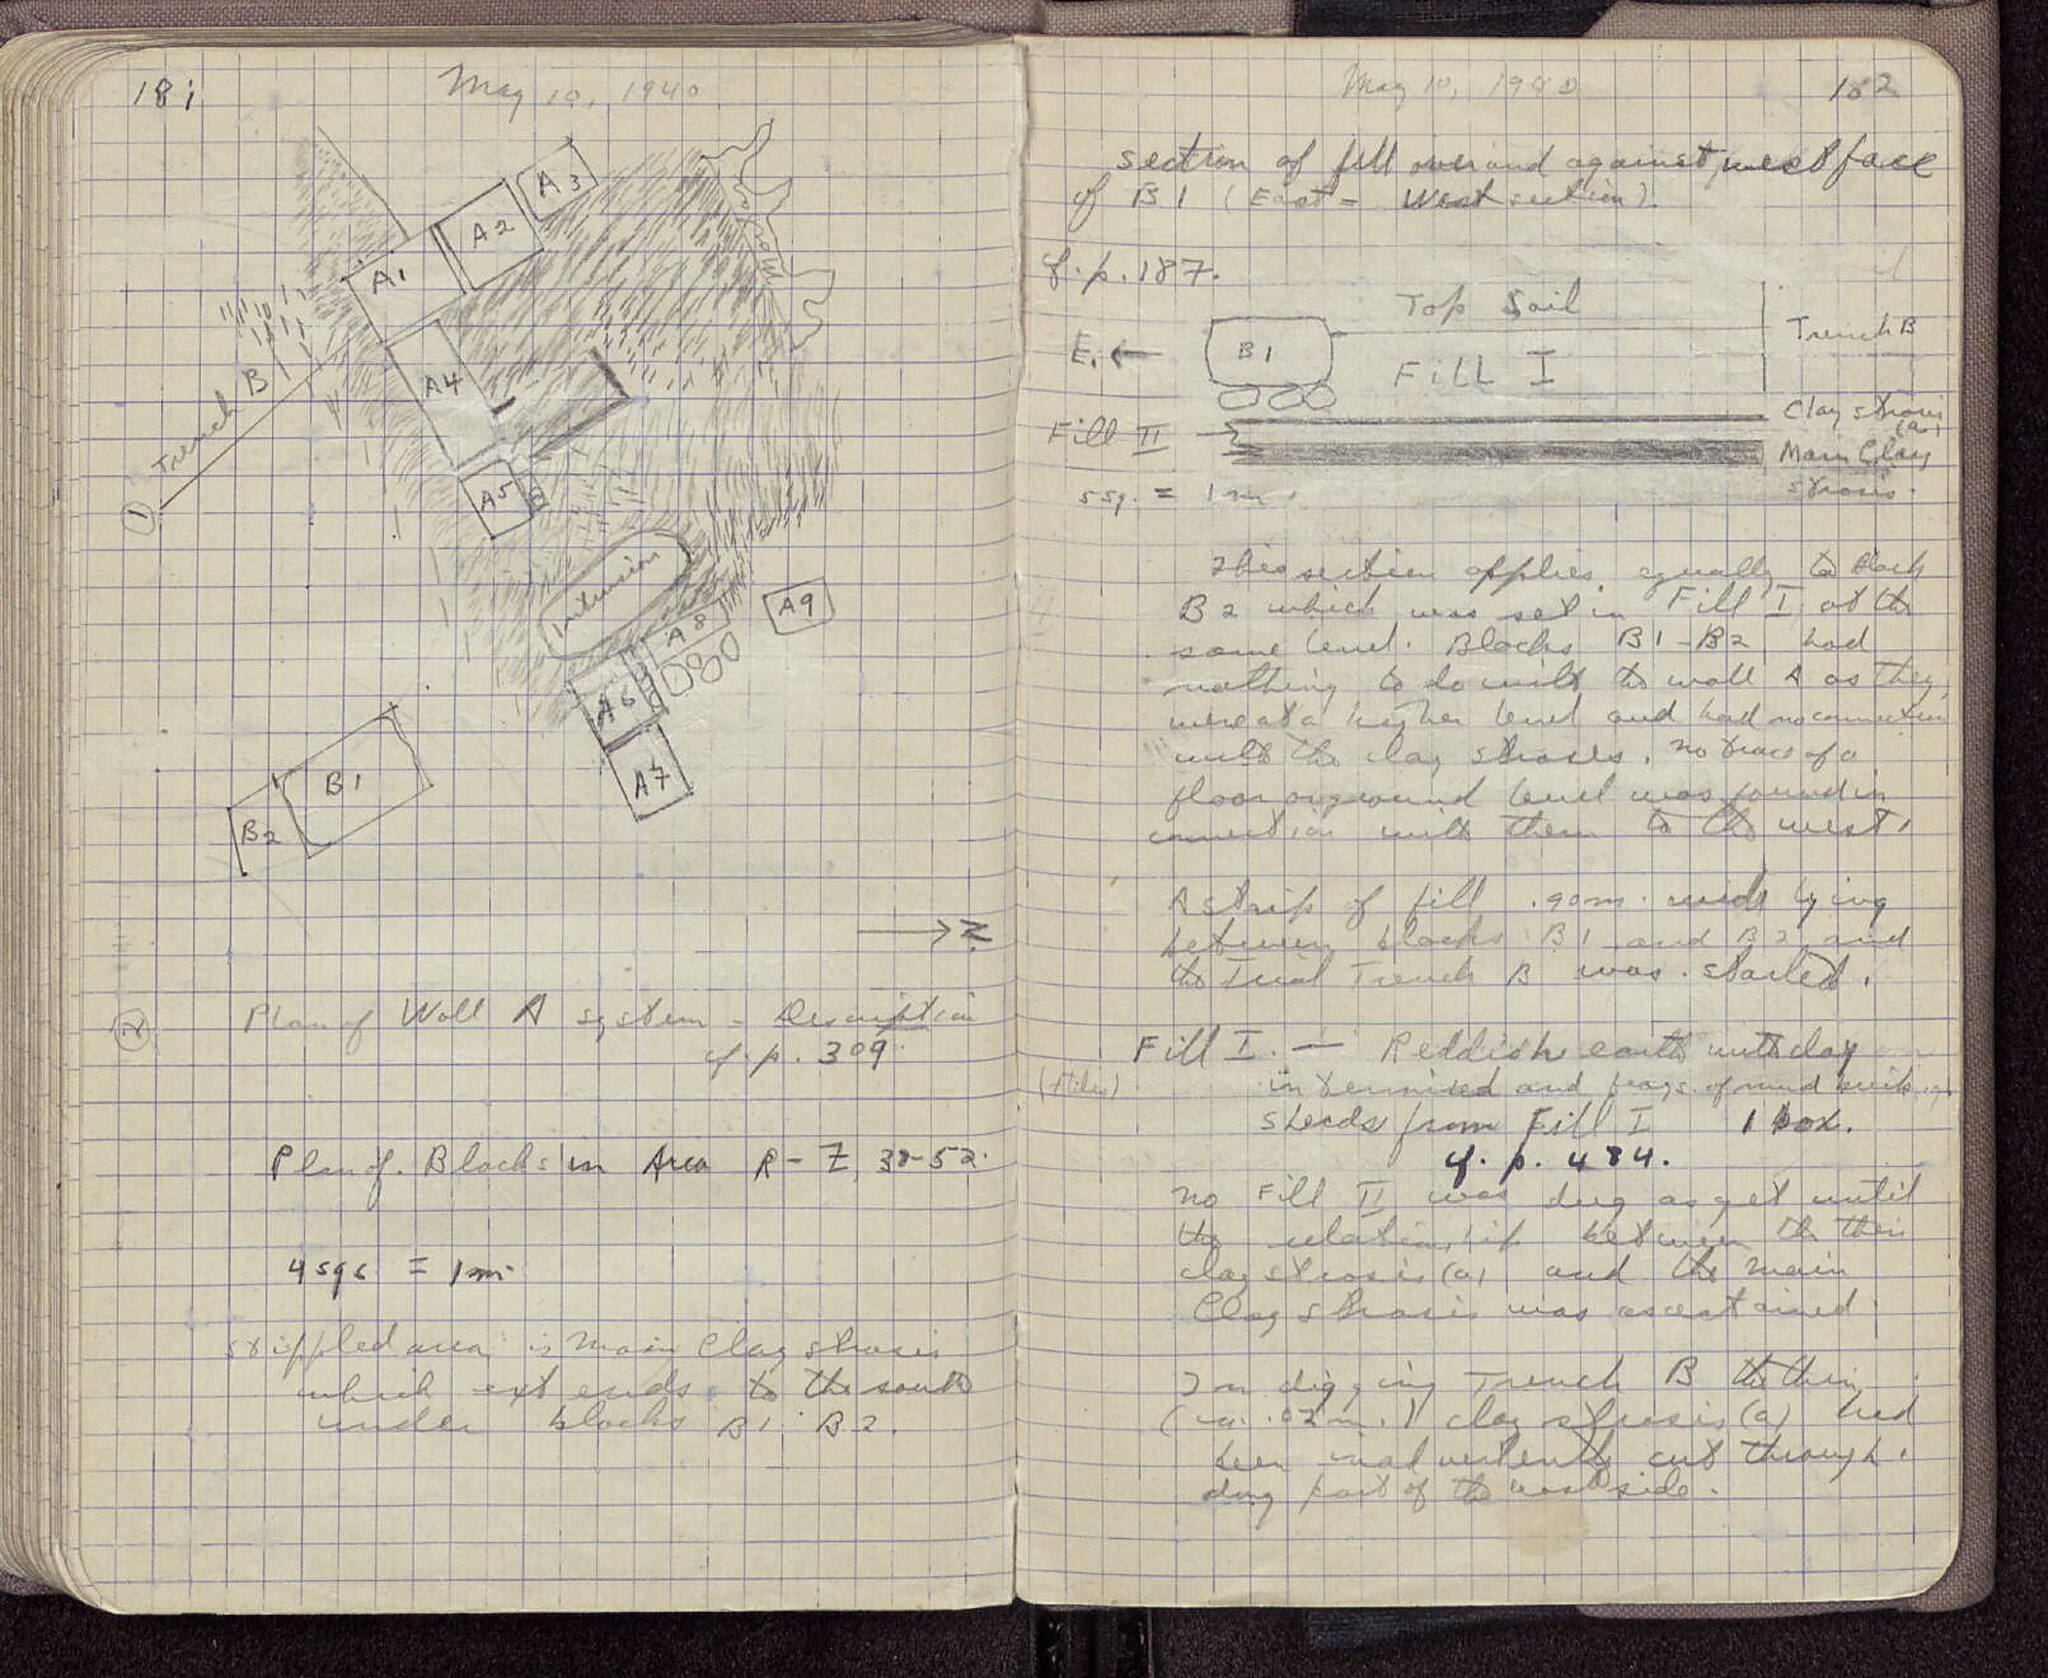 181
May 10, 1940
A3
A2
A1
Trench B
A4
A5
Intrusion
A8
A9
A6
A7
B1
B2
1
→ N
Plan of Wall A system - Description
cf. p. 309.
Plan of Blocks in Area R-Z, 38-52.
4 sqs = 1 m.
stippled area is Main Clay strosis
which extends to the south
under blocks B1 B2.
May 10, 1940
182
section of fill over and against west face
of B1 (East - West section).
cf. p. 187.
Top Soil
Trench B
E. ←
B1
Fill I
Clay strosis
(a)
Fill II
Main Clay
strosis.
5 sq. = 1 m.
This section applies equally to block
B2 which was set in Fill I at the
same level. Blocks B1-B2 had
nothing to do with the wall A as they
were at a higher level and had no connection
with the clay stroses. No trace of a
floor or ground level was found in
connection with them to the west.
A strip of fill .90m. wide lying
between blocks B1 and B2 and
the Trial Trench B was started.
Fill I. — Reddish earth with clay
intermixed and frags. of mud brick
sherds from Fill I 1 box.
cf. p. 484.
No Fill II was dug as yet until
the relationship between the thin
clay strosis (a) and the main
Clay strosis was ascertained.
In digging Trench B the thin
(ca. .02 m.) clay strosis (a) had
been inadvertently cut through.
part of the west side.